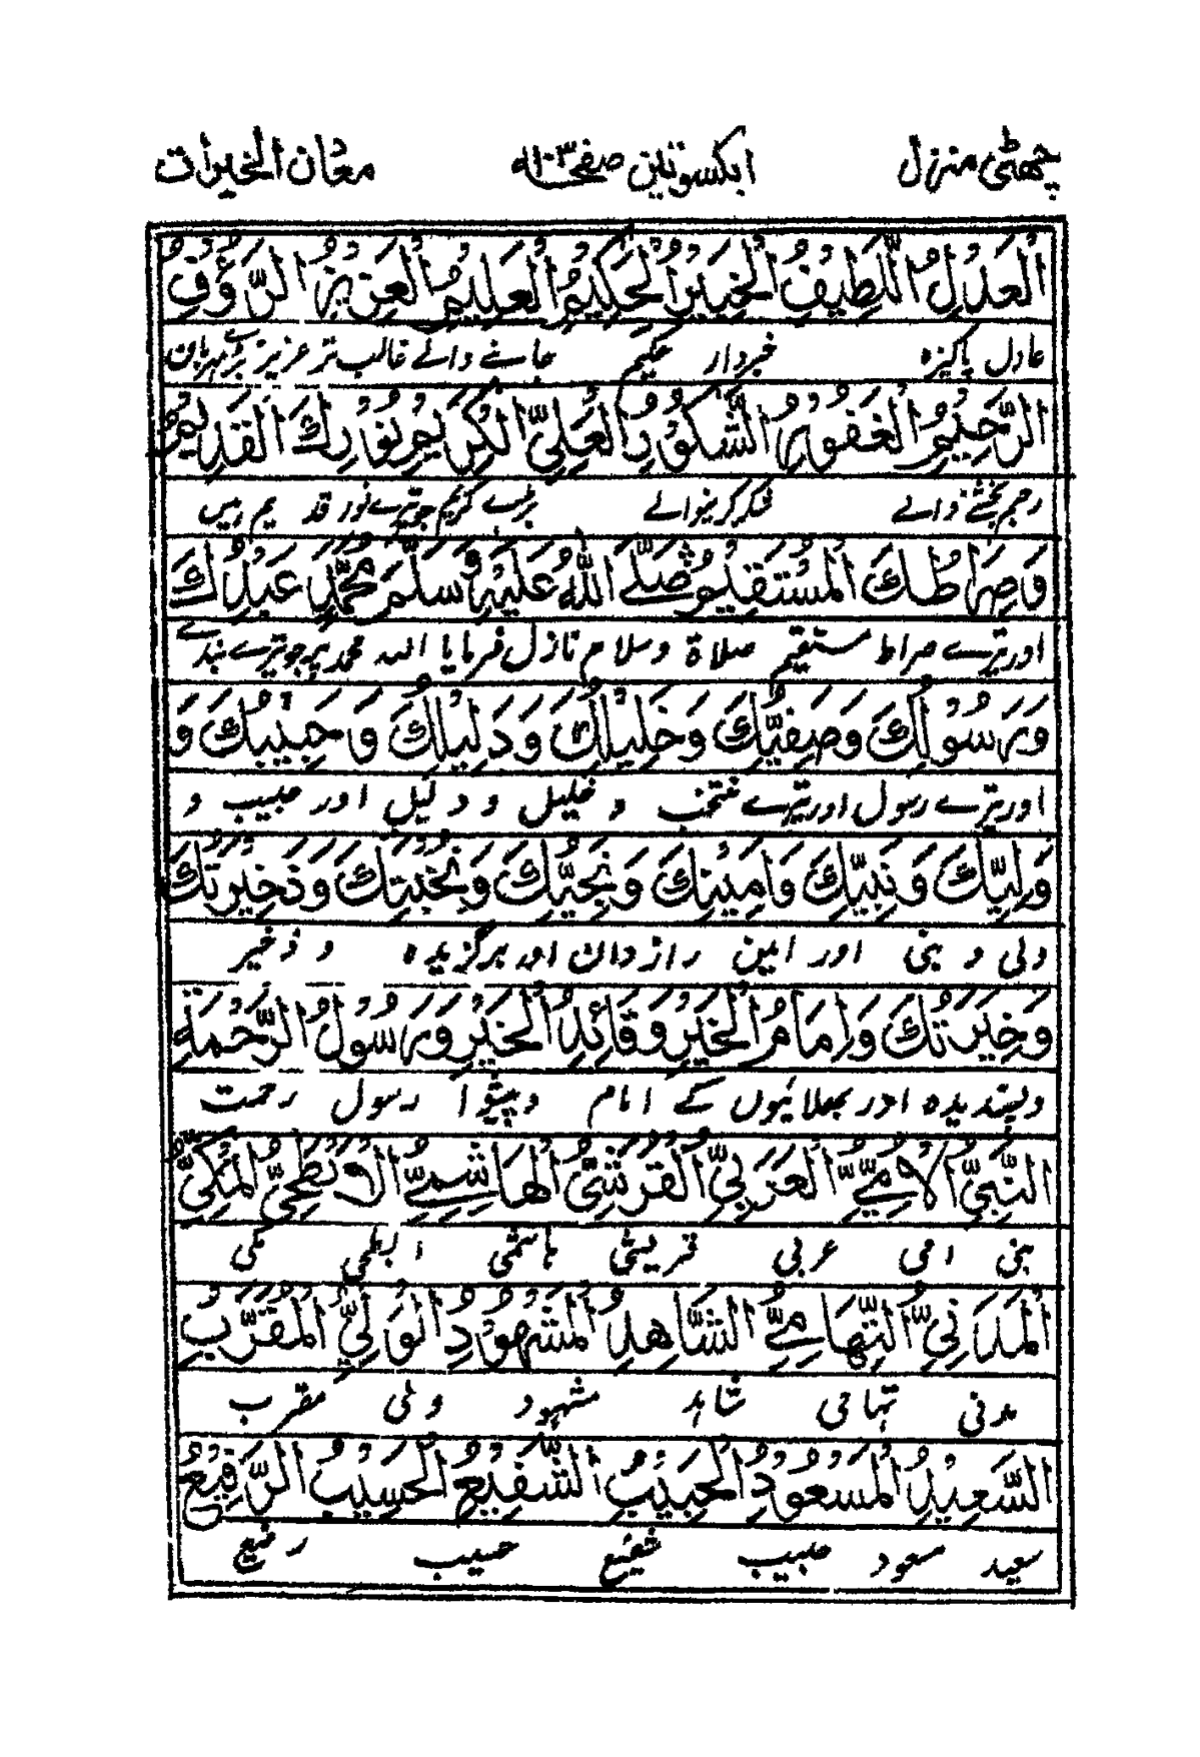 چھٹی منزل ایکسوتین صفحہ ۱۰۳ معان الخیرات
الْعَدْلُ اللَّطِيْفُ الْخَبِيْرُ الْحَكِيْمُ الْعَلِيْمُ الْعَزِيْزُ الرَّءُوْفُ
عادل پاکیزہ خبردار حکیم جاننے والے غالب تر عزیز بڑے مہربان
الرَّحِيْمُ الْغَفُوْرُ الشَّكُوْرُ الْعَلِيُّ الْكَرِيْمُ نُوْرِكَ الْقَدِيْمُ
رحیم بخشنے والے شکر کرنیوالے بڑے کریم جو تیرے نور قدیم ہیں
وَصِرَاطُكَ الْمُسْتَقِيْمُ صَلَّى اللّٰهُ عَلَيْهِ وَسَلَّمَ مُحَمَّدٍ عَبْدِكَ
اور تیرے صراط مستقیم صلاۃ و سلام نازل فرمایا اللہ محمد پر جو تیرے بندے
وَرَسُوْلِكَ وَصَفِيِّكَ وَخَلِيْلِكَ وَدَلِيْلِكَ وَحَبِيْبِكَ وَ
اور تیرے رسول اور تیرے منتخب و خلیل و دلیل اور حبیب و
وَلِيِّكَ وَنَبِيِّكَ وَاَمِيْنِكَ وَنَجِيِّكَ وَنُخْبَتِكَ وَذَخِيْرَتِكَ
ولی و نبی اور امین رازدان اور برگزیدہ و ذخیر
وَخِيَرَتِكَ وَاِمَامُ الْخَيْرِ وَقَائِدِ الْخَيْرِ وَرَسُوْلُ الرَّحْمَةِ
وپسندیدہ اور بھلائیوں کے امام وپیشوا رسول رحمت
النَّبِيِّ الْاُمِّيِّ الْعَرَبِيِّ الْقُرَشِيِّ الْهَاشِمِيِّ الْاَبْطَحِيِّ الْمَكِّيِّ
نبی امی عربی قریشی ہاشمی ابطحی مکی
الْمَدَنِيِّ التِّهَامِيِّ الشَّاهِدِ الْمَشْهُوْدِ الْوَلِيِّ الْمُقَرَّبُ
مدنی تہامی شاہد مشہود ولی مقرب
السَّعِيْدِ الْمَسْعُوْدِ الْحَبِيْبِ الشَّفِيْعِ الْحَسِيْبِ الرَّفِيْعُ
سعید مسعود حبیب شفیع حسیب رفیع